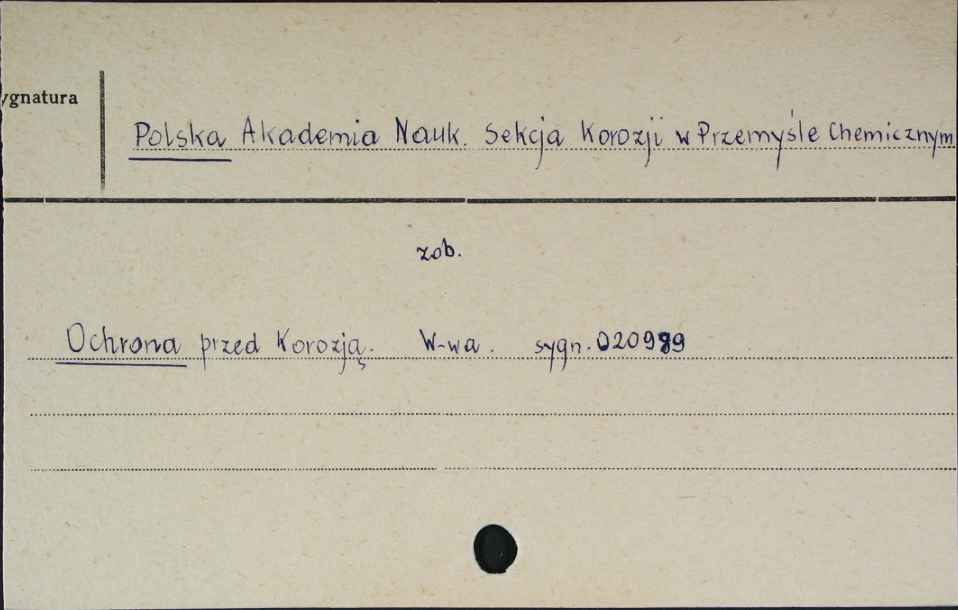 ygnatura
Polska Akademia Nauk. Sekcja Korozji w Przemyśle Chemicznym
zob.
Ochrona przed Korozją. W-wa. sygn. 020989